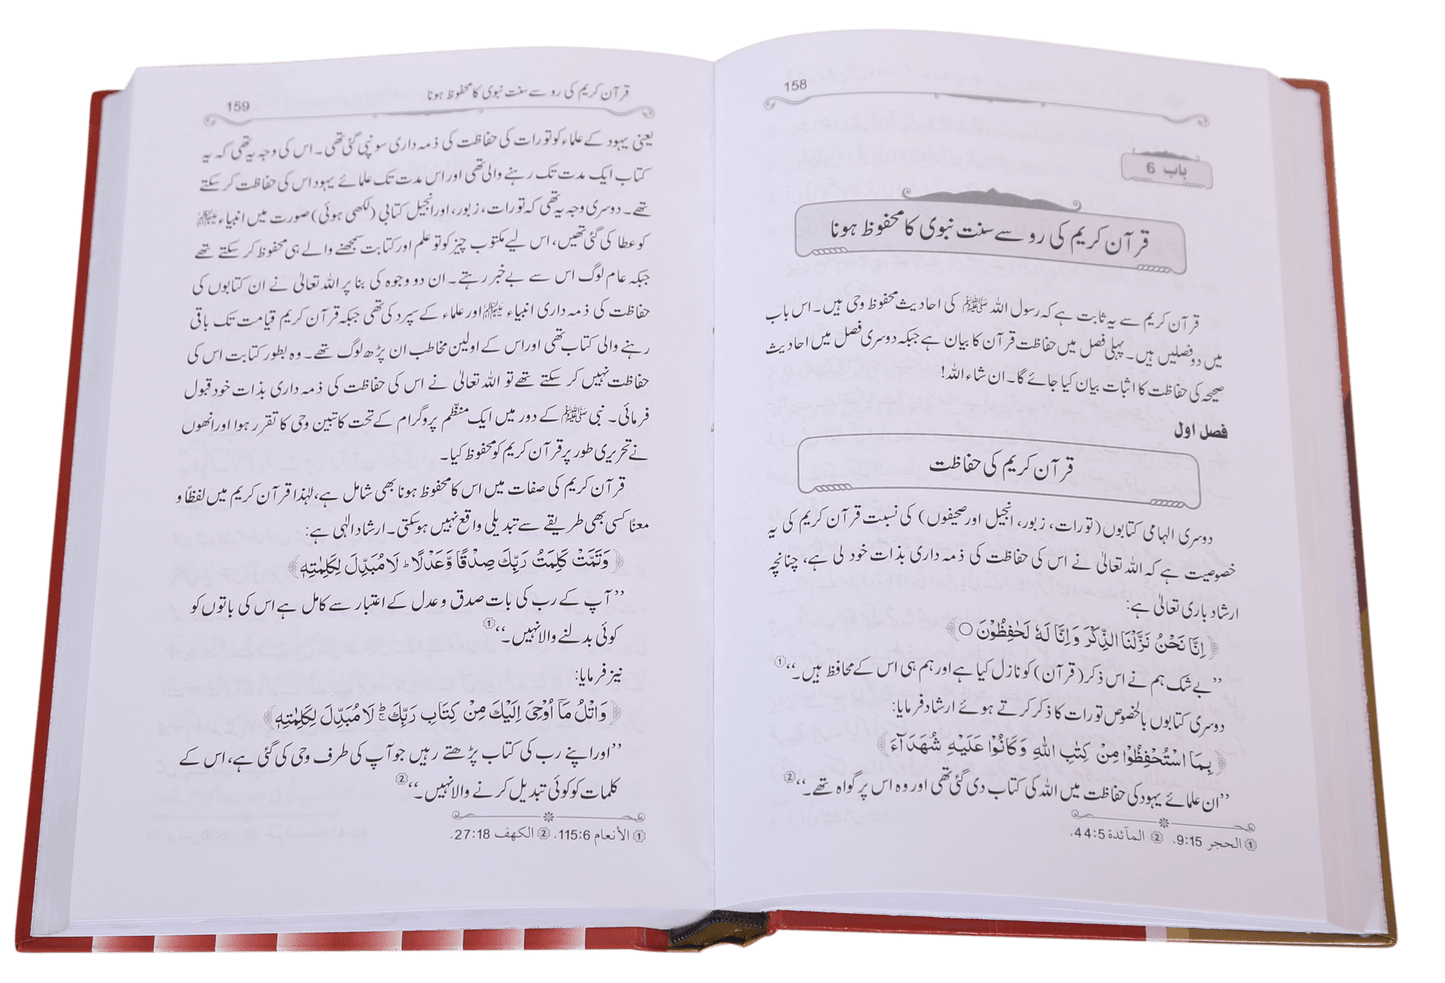 158
باب 6
قرآن کریم کی رو سے سنت نبوی کا محفوظ ہونا
قرآن کریم سے یہ ثابت ہے کہ رسول اللہ ﷺ کی احادیث محفوظ وحی ہیں۔ اس باب
میں دو فصلیں ہیں۔ پہلی فصل میں حفاظت قرآن کا بیان ہے جبکہ دوسری فصل میں احادیث
صحیحہ کی حفاظت کا اثبات بیان کیا جائے گا۔ ان شاء اللہ!
فصل اول
قرآن کریم کی حفاظت
دوسری الہامی کتابوں (تورات، زبور، انجیل اور صحیفوں) کی نسبت قرآن کریم کی یہ
خصوصیت ہے کہ اللہ تعالیٰ نے اس کی حفاظت کی ذمہ داری بذات خود لی ہے، چنانچہ
ارشاد باری تعالیٰ ہے:
﴿اِنَّا نَحْنُ نَزَّلْنَا الذِّكْرَ وَ اِنَّا لَهٗ لَحٰفِظُوْنَ ○﴾
’’بے شک ہم نے اس ذکر (قرآن) کو نازل کیا ہے اور ہم ہی اس کے محافظ ہیں۔‘‘①
دوسری کتابوں بالخصوص تورات کا ذکر کرتے ہوئے ارشاد فرمایا:
﴿بِمَا اسْتُحْفِظُوْا مِنْ كِتٰبِ اللّٰهِ وَ كَانُوْا عَلَيْهِ شُهَدَآءَ﴾
’’ان علمائے یہود کی حفاظت میں اللہ کی کتاب دی گئی تھی اور وہ اس پر گواہ تھے۔‘‘②
① الحجر 9:15. ② المآئدة 44:5.
قرآن کریم کی رو سے سنت نبوی کا محفوظ ہونا 159
یعنی یہود کے علماء کو تورات کی حفاظت کی ذمہ داری سونپی گئی تھی۔ اس کی وجہ یہ تھی کہ یہ
کتاب ایک مدت تک رہنے والی تھی اور اس مدت تک علمائے یہود اس کی حفاظت کر سکتے
تھے۔ دوسری وجہ یہ تھی کہ تورات، زبور، اور انجیل کتابی (لکھی ہوئی) صورت میں انبیاء ﷺ
کو عطا کی گئی تھیں، اس لیے مکتوب چیز کو تو علم اور کتابت سمجھنے والے ہی محفوظ کر سکتے تھے
جبکہ عام لوگ اس سے بے خبر رہتے۔ ان دو وجوہ کی بنا پر اللہ تعالیٰ نے ان کتابوں کی
حفاظت کی ذمہ داری انبیاء ﷺ اور علماء کے سپرد کی تھی جبکہ قرآن کریم قیامت تک باقی
رہنے والی کتاب تھی اور اس کے اولین مخاطب ان پڑھ لوگ تھے۔ وہ بطور کتابت اس کی
حفاظت نہیں کر سکتے تھے تو اللہ تعالیٰ نے اس کی حفاظت کی ذمہ داری بذات خود قبول
فرمائی۔ نبی ﷺ کے دور میں ایک منظّم پروگرام کے تحت کاتبین وحی کا تقرر ہوا اور انھوں
نے تحریری طور پر قرآن کریم کو محفوظ کیا۔
قرآن کریم کی صفات میں اس کا محفوظ ہونا بھی شامل ہے، لہٰذا قرآن کریم میں لفظًا و
معنًا کسی بھی طریقے سے تبدیلی واقع نہیں ہو سکتی۔ ارشاد الٰہی ہے:
﴿وَ تَمَّتْ كَلِمَتُ رَبِّكَ صِدْقًا وَّ عَدْلًا ؕ لَا مُبَدِّلَ لِكَلِمٰتِهٖ﴾
’’آپ کے رب کی بات صدق و عدل کے اعتبار سے کامل ہے اس کی باتوں کو
کوئی بدلنے والا نہیں۔‘‘①
نیز فرمایا:
﴿وَ اتْلُ مَاۤ اُوْحِيَ اِلَيْكَ مِنْ كِتَابِ رَبِّكَ ۚ لَا مُبَدِّلَ لِكَلِمٰتِهٖ﴾
’’اور اپنے رب کی کتاب پڑھتے رہیں جو آپ کی طرف وحی کی گئی ہے، اس کے
کلمات کو کوئی تبدیل کرنے والا نہیں۔‘‘②
① الأنعام 115:6. ② الكهف 27:18.